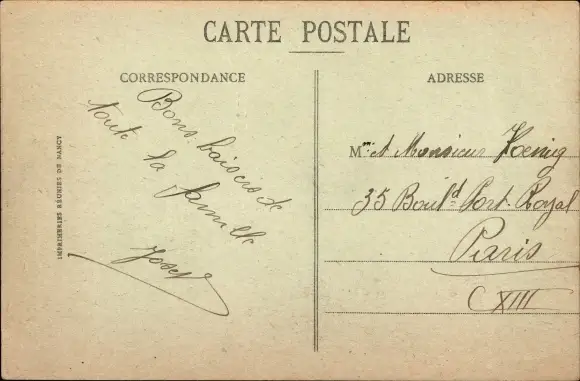 CARTE POSTALE
CORRESPONDANCE
Bons baisers de
toute la famille
Josef
IMPRIMERIES RÉUNIES DE NANCY
ADRESSE
Mme et Monsieur Kœnig
35 Boul.d Port-Royal
Paris
XIII